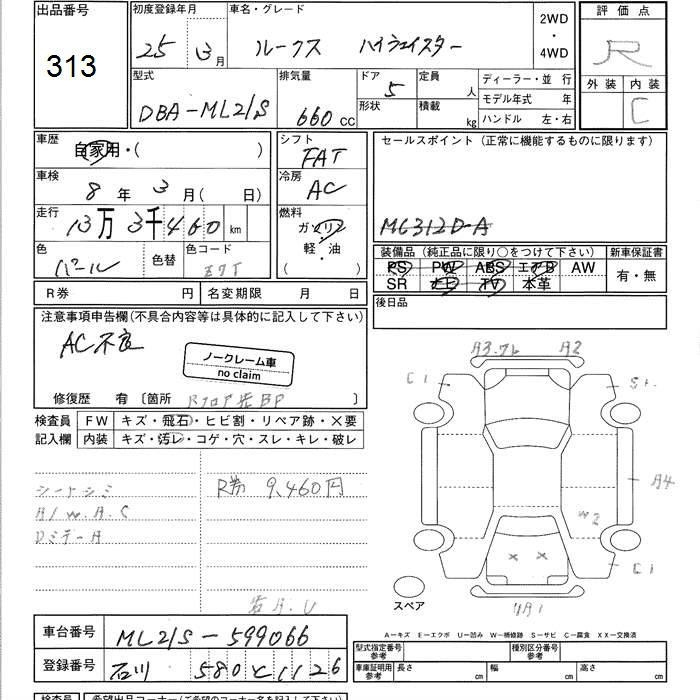 出品番号
313
初度登録年月
25 年 3 月
車名・グレード
ルークス ハイウェイスター
2WD
・
4WD
評価点
R
外装 内装
C
型式
DBA-ML21S
排気量
660 CC
ドア 5
形状
定員 人
積載 kg
ディーラー・並行
モデル年式 年
ハンドル 左・右
車歴
自家用・( )
シフト
FAT
セールスポイント (正常に機能するものに限ります)
車検
8 年 3 月( 日)
冷房
AC
走行
13万 3千460 km
燃料
ガソリン
軽・油
( )
MC312D-A
色
パール
色替
色コード
装備品 (純正品に限り○をつけて下さい)
PS PW ABS エアB AW
SR ナビ TV 本革
新車保証書
有・無
R券 円
名変期限 月 日
後日品
注意事項申告欄(不具合内容等は具体的に記入して下さい)
AC不良
ノークレーム車
no claim
修復歴 有 [箇所 Rフロア先BP ]
検査員
記入欄
FW キズ・飛石・ヒビ割・リペア跡・×要
内装 キズ・汚レ・コゲ・穴・スレ・キレ・破レ
シートシミ
A/W.A.C
R券 9,460円
A2
C1
S1
A4
W2
C1
××
スペア
A-キズ E-エクボ U-凹み W-補修跡 S-サビ C-腐食 XX-交換済
車台番号
ML21S-599066
登録番号
石川 580 と 1126
型式指定番号
参考
種別区分番号
参考
車庫証明用
参考
長さ cm
幅 cm
高さ cm
検査員
希望出品コーナー(ご希望のコーナー名を記入して下さい)